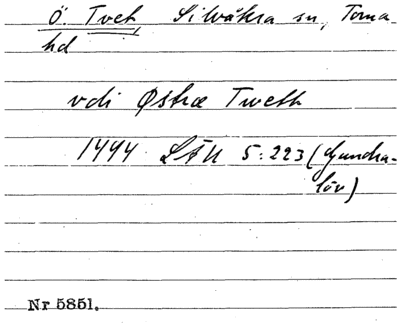 Ö. Tvet, Silvåkra sn, Torna
hd
vdi Østræ Tweth
1494 LÄU 5:223 (Gundra-
löv)
Nr 5851.